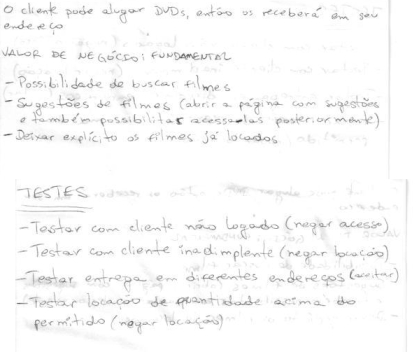 O cliente pode alugar DVDs, então os receberá em seu
endereço
VALOR DE NEGÓCIO: FUNDAMENTAL
- Possibilidade de buscar filmes
- Sugestões de filmes (abrir a página com sugestões
e também possibilitar acessá-las posteriormente)
- Deixar explícito os filmes já locados
TESTES
- Testar com cliente não logado (negar acesso)
- Testar com cliente inadimplente (negar locação)
- Testar entrega em diferentes endereços (aceitar)
- Testar locação de quantidade acima do
permitido (negar locação)